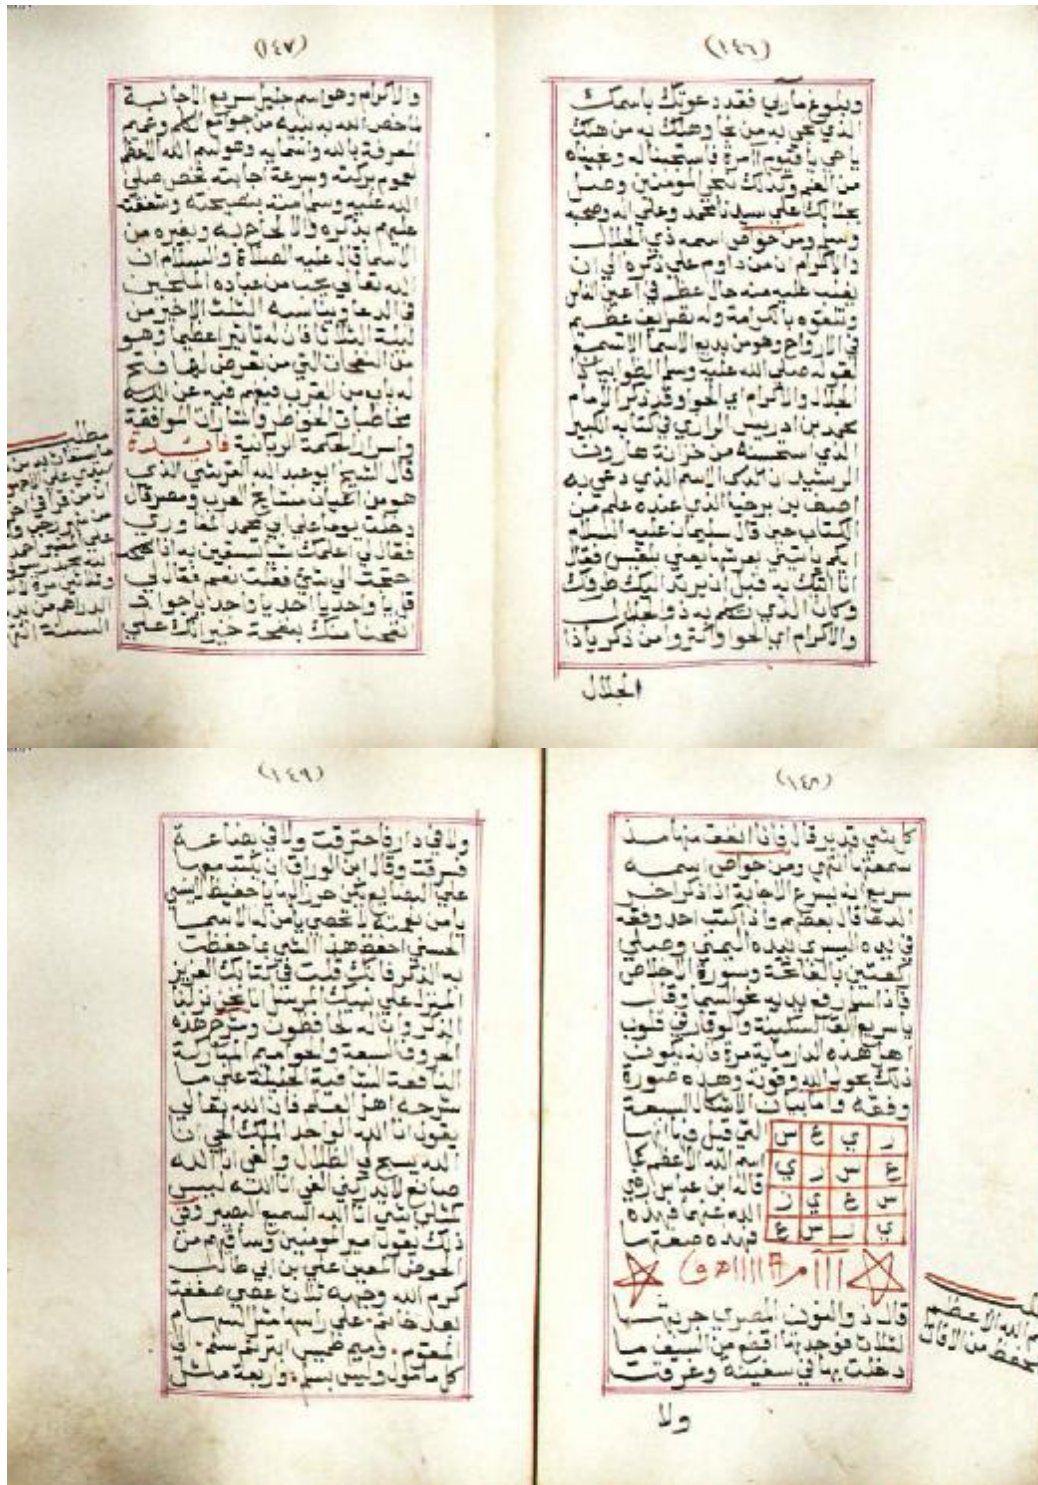 (١٤٦)
وبلوغ مآربي فقد دعوتك باسمك
الذي نجي به من نجا وهلك به من هلك
ياحي ياقيوم فاستجبنا له ونجيناه
من الغم وكذلك ننجي المومنين وصل
بجلالك علي سيدنا محمد وعلي اله وصحبه
وسلم ومن خواص اسمه ذي الجلال
والاكرام ان من داوم علي ذكره الي ان
يغلب عليه منه حال عظم في اعين الناس
بالكرامة وله تصريف عظيم
في الارواح وهو من بديع الاسما
لقوله صلي الله عليه وسلم الظوا بياذا
الجلال والاكرام اي الحوا وقد ذكر الامام
محمد بن ادريس الرازي في كتابه الكبير
الذي من خزانة هارون
الرشيد ان الاسم الذي دعي به
اصف بن برخيا الذي عنده علم من
الكتاب حين قال سليمان عليه السلام
ايكم ياتيني بعرشها يعني بلقيس فقال
انا اتيك به قبل ان يرتد اليك طرفك
وكان الذي تكلم به ذو الجلال
والاكرام اي الحوا واكثروا من ذكر ياذا
الجلال
(١٤٧)
والاكرام وهو اسم جليل سريع الاجابة
لما خص الله به نبيه من جوامع الكلم
المعرفة بالله واسمايه وهو اسم الله الاعظم
لعموم بركته وسرعة اجابته فخص صلي
الله عليه وسلم امته بنصيحته وشفقته
عليهم بذكره والالحاح به وبغيره من
الاسما قال عليه الصلاة والسلام ان
الله تعالي يحب من عباده الملحين
في الدعا ويناسبه الثلث الاخير من
ليلة الثلاثا فان له تاثيرا عظيما وهو
من النفحات التي من تعرض لها فتح
له باب من القرب فيفهم فيه عن الله
مخاطبات الخواطر واشارات الموافقة
واسرار الحكمة الربانية فايدة
قال الشيخ ابو عبد الله القرشي الذي
هو من اعيان مشايخ الغرب ومصر قال
دخلت يوما علي ابي محمد المغاوري
فقال لي اعلمك شيا تستعين به اذا
احتجت الي شي فقلت نعم فقال لي
قل يا واحد يا احد يا واجد يا جواد
انفحنا منك بنفحة خير انك علي
مطلب
(١٤٨)
كل شي قدير قال فانا انفق منها منذ
سمعتها انتهي ومن خواص اسمه
سريع انه يسرع الاجابة اذا ذكر اخر
الدعا قال بعضهم واذا كتب احد وفقه
في يده اليسري بيده اليمني وصلي
ركعتين بالفاتحة وسورة الاخلاص
فاذا سلم رفع يديه نحو السما وقال
ياسريع الق السكينة والوقار في قلوب
اهل هذه الدار ماية مرة فانه يكون
ذلك بحول الله وقوته وهذه صورة
وفقه واما بيان الاشكال السبعة
التي قيل فيها انها
اسم الله الاعظم كما
قاله ابن عباس رضي
الله عنهما فهذه
فهذه صفتها
قال ذو النون المصري جربتها
لثلاث فوجدتها اقطع من السيف ما
دخلت بها في سفينة وغرقت
ولا
الله الاعظم
(١٤٩)
ولا في دار فاحترقت ولا في بضاعة
فسرقت وقال ابن الوراق ان كتبت معها
علي البضايع تكن حرزا لها ياحفيظ لاينسي
يامن نعمته لاتحصي يامن له الاسما
الحسني احفظ هذا الشي بما حفظت
به الذكر فانك قلت في كتابك العزيز
المنزل علي نبيك المرسل انا نحن نزلنا
الذكر وانا له لحافظون وشرح هذه
الحروف السبعة والخواتم المباركة
النافعة الشافية الجليلة علي ما
شرحه اهل العلم فان الله تعالي
يقول انا الله الواحد الملك الحي انا
الله يسبح لي الظلال والفي انا الله
صانع لايدركني الغي انا الله ليس
كمثلي شي انا الله السميع البصير وفي
ذلك يقول امير المومنين وساقيهم من
الحوض المعين علي بن ابي طالب
كرم الله وجهه ثلاث عصي صففت
بعد خاتم علي راسها مثل السهام
المقوم وميم طميس ابتر ثم سلم الي
كل مامول وليس بسلم واربعة مثل